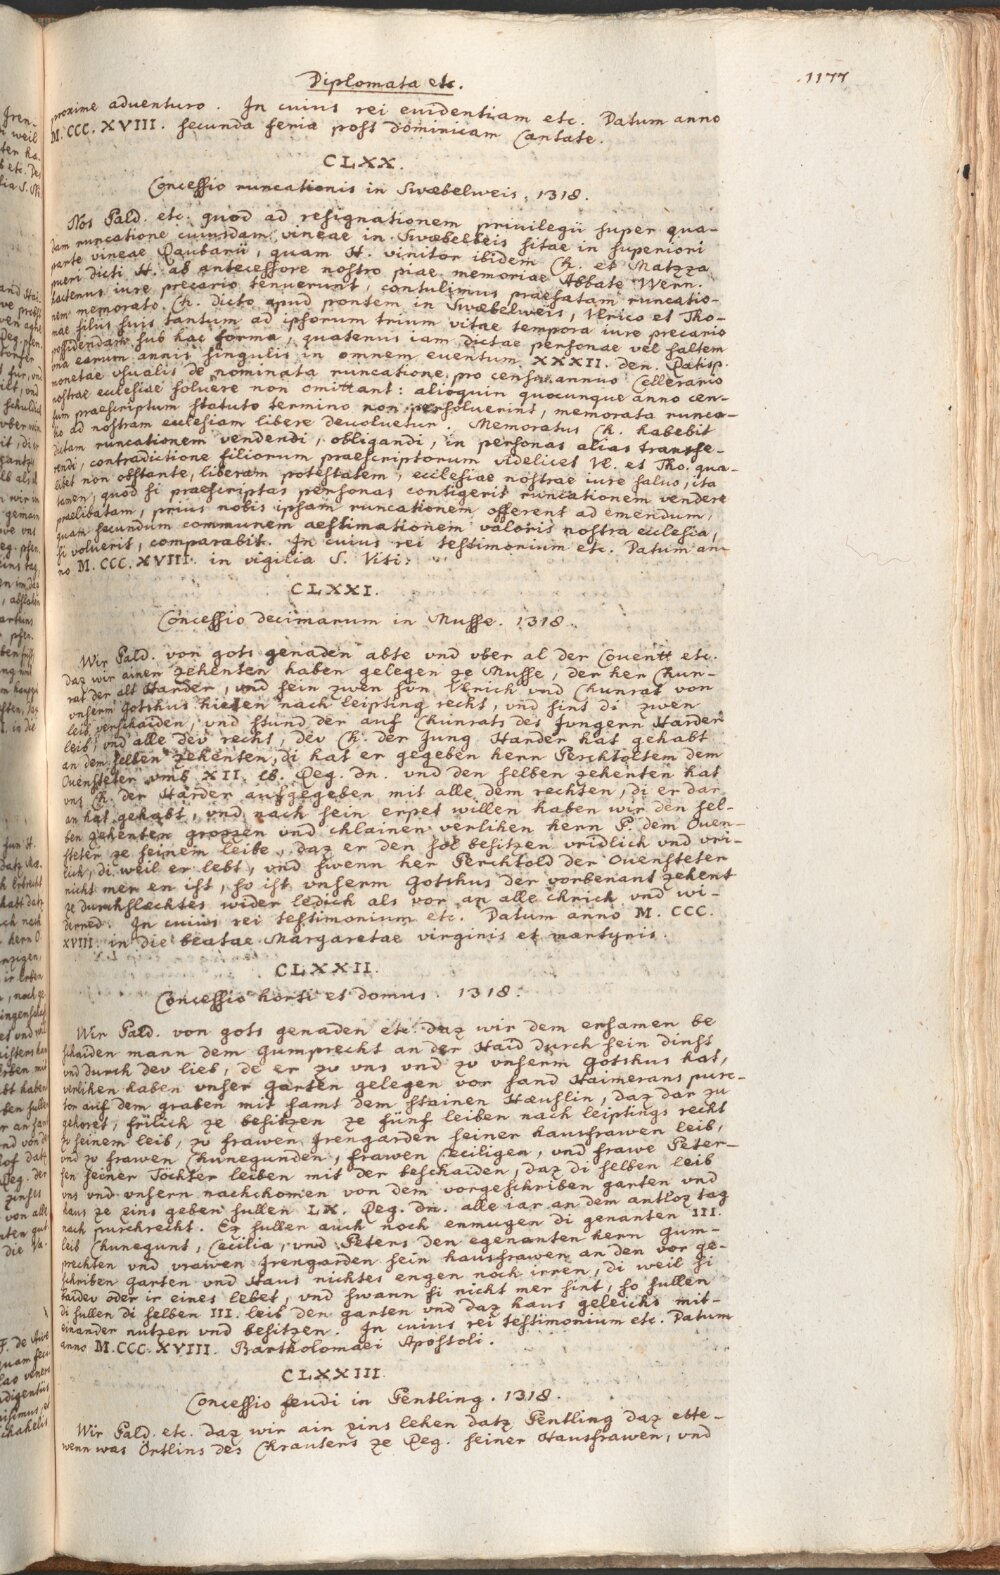 Diplomata etc.
1177
proxime adventuro. In cuius rei evidentiam etc. Datum anno
M.CCC.XVIII. secunda feria post dominicam Cantate.
CLXX.
Concessio runcationis in Swæbelweis, 1318.
Nos Pald. etc. quod ad resignationem privilegii super qua-
dam runcatione cuiusdam vineae in Swæbelbeis sitae in superiori
parte vineae Daubarii, quam H. vinitor ibidem Ch. et Matzza
pueri dicti H. ab antecessore nostro piae memoriae Abbate Wern.
hactenus iure precario tenuerunt, contulimus praefatam runcatio-
nem memorato Ch. dicto apud pontem in Swæbelweis, Ulrico et Tho-
mae filiis suis tantum ad ipsorum trium vitae tempora iure precario
possidendam sub hac forma, quatenus iam dictae personae vel saltem
una earum annis singulis in omnem eventum XXXII. den. Ratisp.
monetae usualis de nominata runcatione pro censu annuo Cellerario
nostrae ecclesiae solvere non omittant: alioquin quocunque anno cen-
sum praescriptum statuto termino non persolverint, memorata runca-
tio ad nostram ecclesiam libere devolvetur. Memoratus Ch. habebit
dictam runcationem vendendi, obligandi, in personas alias transfe-
rendi, contradictione filiorum praescriptorum videlicet Ul. et Tho. qua-
libet non obstante, liberam potestatem, ecclesiae nostrae iure salvo, ita
tamen, quod si praescriptas personas contigerit runcationem vendere
praelibatam, prius nobis ipsam runcationem offerent ad emendum,
quam secundum communem aestimationem valoris nostra ecclesia,
si voluerit, comparabit. In cuius rei testimonium etc. Datum an-
no M.CCC.XVIII. in vigilia S. Viti.
CLXXI.
Concessio decimarum in Musse. 1318.
Wir Pald. von gots genaden abte vnd vber al der Covent etc.
daz wir ainen zehenten haben gelegen ze Musse, der her Chun-
rat der alt Harder, vnd sein zwen sün, Vlrich vnd Chunrat von
vnserm Gotshus hieten nach leipting recht, vnd sint di zwen
leib verschaiden, vnd stund der auf Chunrats des Jungern Harder
leib, vnd alle dev recht, dev Ch. der Jung Harder hat gehabt
an dem selben zehenten, di hat er gegeben hern Perchtoltem dem
Ouensteter vmb XII. lb. Reg. dn. vnd den selben zehenten hat
vns Ch. der Harder aufgegeben mit alle dem rechten, di er dar
an hat gehabt, vnd nach sein erpet willen haben wir den sel-
ben zehenten grozzen vnd chlainen verlihen hern P. dem Ouen-
steter ze seinem leibe, daz er den sol besitzen vridlich vnd vri-
lich, di weil er lebt, vnd swenn her Perchtold der Ouensteter
nicht mer en ist, so ist vnserm Gotshus der vorbenant zehent
ze durchslechtes wider ledich als vor an alle chrieh vnd wi-
derred. In cuius rei testimonium etc. Datum anno M. CCC.
XVIII. in die beatae Margaretae virginis et martyris.
CLXXII.
Concessio horti et domus. 1318.
Wir Pald. von gots genaden etc. daz wir dem ersamen be
schaiden mann dem Gumprecht an der Haid durch sein dinst
vnd durch dev lieb, de er zu vns vnd zu vnserm Gotshus hat,
verlihen haben vnser garten gelegen vor sand Haimerans purc-
tor auf dem graben mit samt dem stainen Hæuslin, daz dar zu
gehoret, frilich ze besitzen ze fünf leiben nach leiptings recht
zu seinem leib, zu frawen Irengarden seiner hausfrawen leib,
vnd zu frawen Chunegunden, frawen Ceciligen, vnd frawe Peter-
sen seiner Töchter leiben mit der beschaiden, daz di selben leib
vns vnd vnsern nachchomen von dem vorgeschriben garten vnd
haus ze zins geben sullen LX. Reg. dn. alle iar an dem antloz tag
nach purchrecht. Ez sullen auch noch enmugen di genanten III.
leib Chunegunt, Cecilia, vnd Peters den egenanten hern Gum-
prechten vnd vrawen Irengarden sein hausfrawen an den vor ge-
schriben garten vnd Haus nichtes engen noch irren, di weil si
baidev oder ir eines lebet, vnd swann si nicht mer sint, so sullen
di sullen di selben III. leib den garten vnd daz haus geleichs mit-
einander nutzen vnd besitzen. In cuius rei testimonium etc. Datum
anno M.CCC.XVIII. Bartholomaei Apostoli.
CLXXIII.
Concessio feudi in Pentling. 1318.
Wir Pald. etc. daz wir ain zins lehen datz Pentling daz ette-
wenn was Örtlins des Chrauters ze Reg. seiner Hausfrawen, vnd